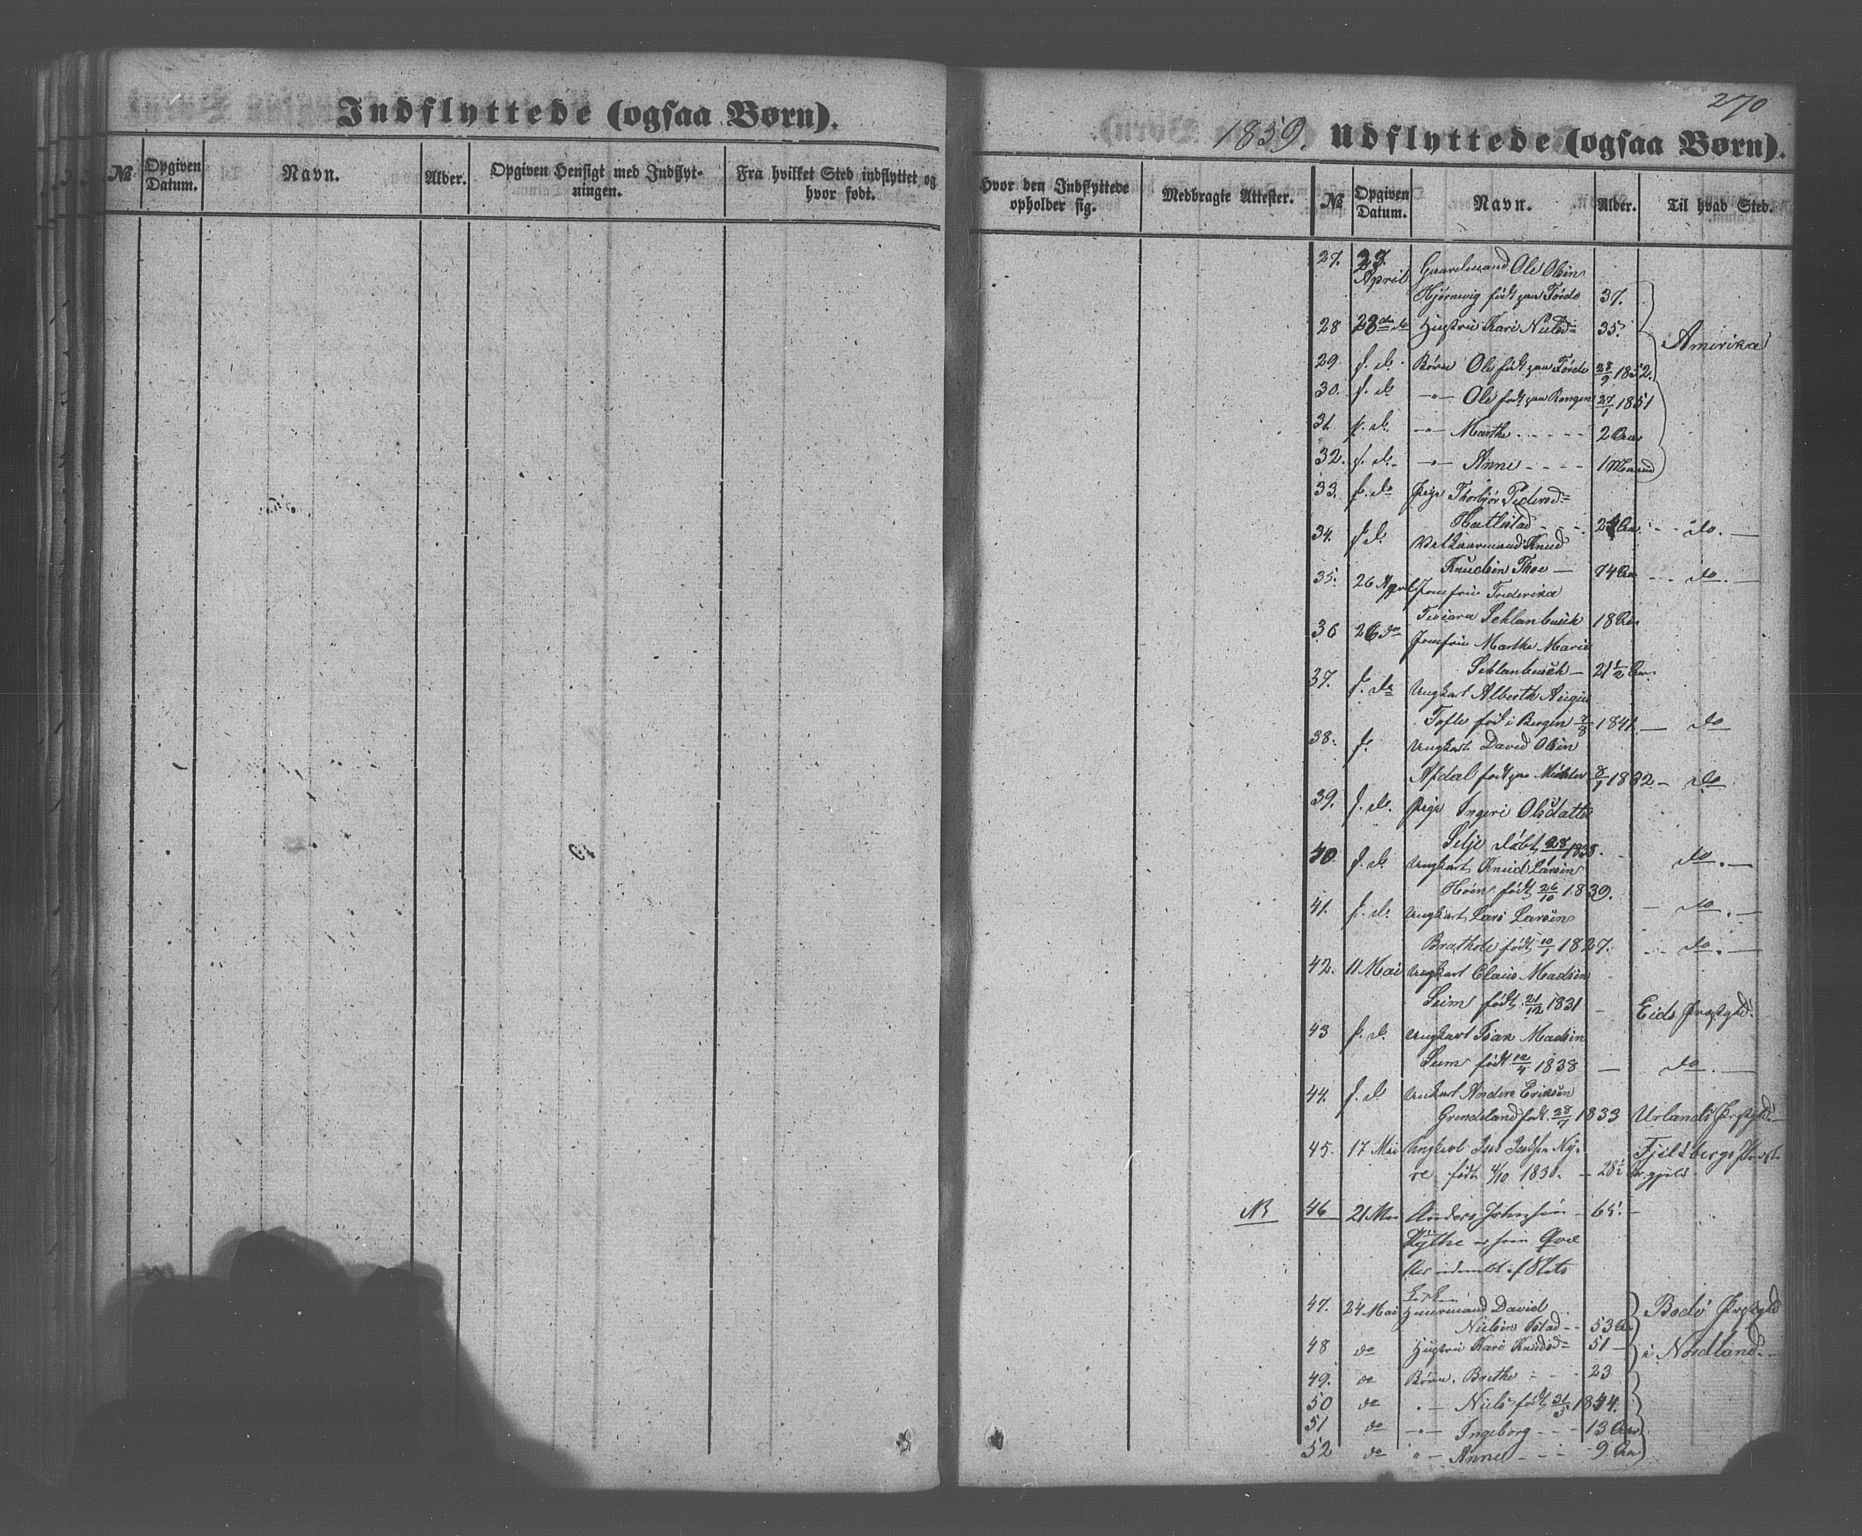 Indflyttede (ogsaa Børn).
No Opgiven Datum. Navn. Alder. Opgiven Hensigt med Indflytningen. Fra hvilket Sted indflyttet og hvor født.
270
1859. Udflyttede (ogsaa Børn).
Hvor den Indflyttede opholder sig. Medbragte Attester. No Opgiven Datum. Navn. Alder. Til hvad Sted.
27. 23 April Gaardmand Ole Olsen
Hjørnevig født paa Førde 37.
28 23de do Hustru Kari Nielsd= 35. Amerika
29. s. d. Børn Ole født paa Førde 28/9 1852.
30. s. d. -"- Ole født paa Rongen 27/1 1851
31 s. d. -"- Marthe 2 Aar
32. s. d. -"- Anne 1 Maaned
33. s. do Pige Thorbjør Pedersd=
Hatlestad 24 Aar do.
34. s. d. Vilkaarmand Knud
Knudsen Thoe 74 Aar do.
35. 26 April Jomfru Frederika
Schlanbusch 18 Aar
36 26 do Jomfru Marthe Marie
Schlanbusch 21 1/2 Aar
37. s. do Ungkarl Alberth August
Tofte fød i Bergen 1841. do
38. s. Ungkarl David Olsen
Afdal født paa 1832 do
39. s. d. Pige Ingeri Olsdatter
Selje døbt 28/1 1838. do.
40 s. d. Ungkarl Knud Larsen
Hoen født 26/10 1839. do.
41. s. d. Ungkarl Lars Larsen
født 10/1 1827. do.
42. 11 Mai Ungkarl Claus Madsen
Seim født 21/12 1831 Eids Prstgld.
43 s. d. Ungkarl Isak Madsen
Seim født 12/4 1838 do.
44. s. d. Unkarl Andere Eriksen
Grindeland født 28/7 1833 Urlands Prstgld.
45. 17 Mai Ungkarl
født 4/10 1830. 28 1/2 Fjeldbergs Præstegjeld
NB 46 21 Mai Anders Johnsen 65.
47. 24 Mai Huusmand David
Nielsen 53 Aar Bodø Prstgld
48 do Hustru Kari Knudsd= 51 i Nordland.
49. do Børn. Brethe 23
50 do -"- Niels født 31/3 1844.
51 do -"- Ingeborg 13 Aar
52 do -"- Anne 9 Aar